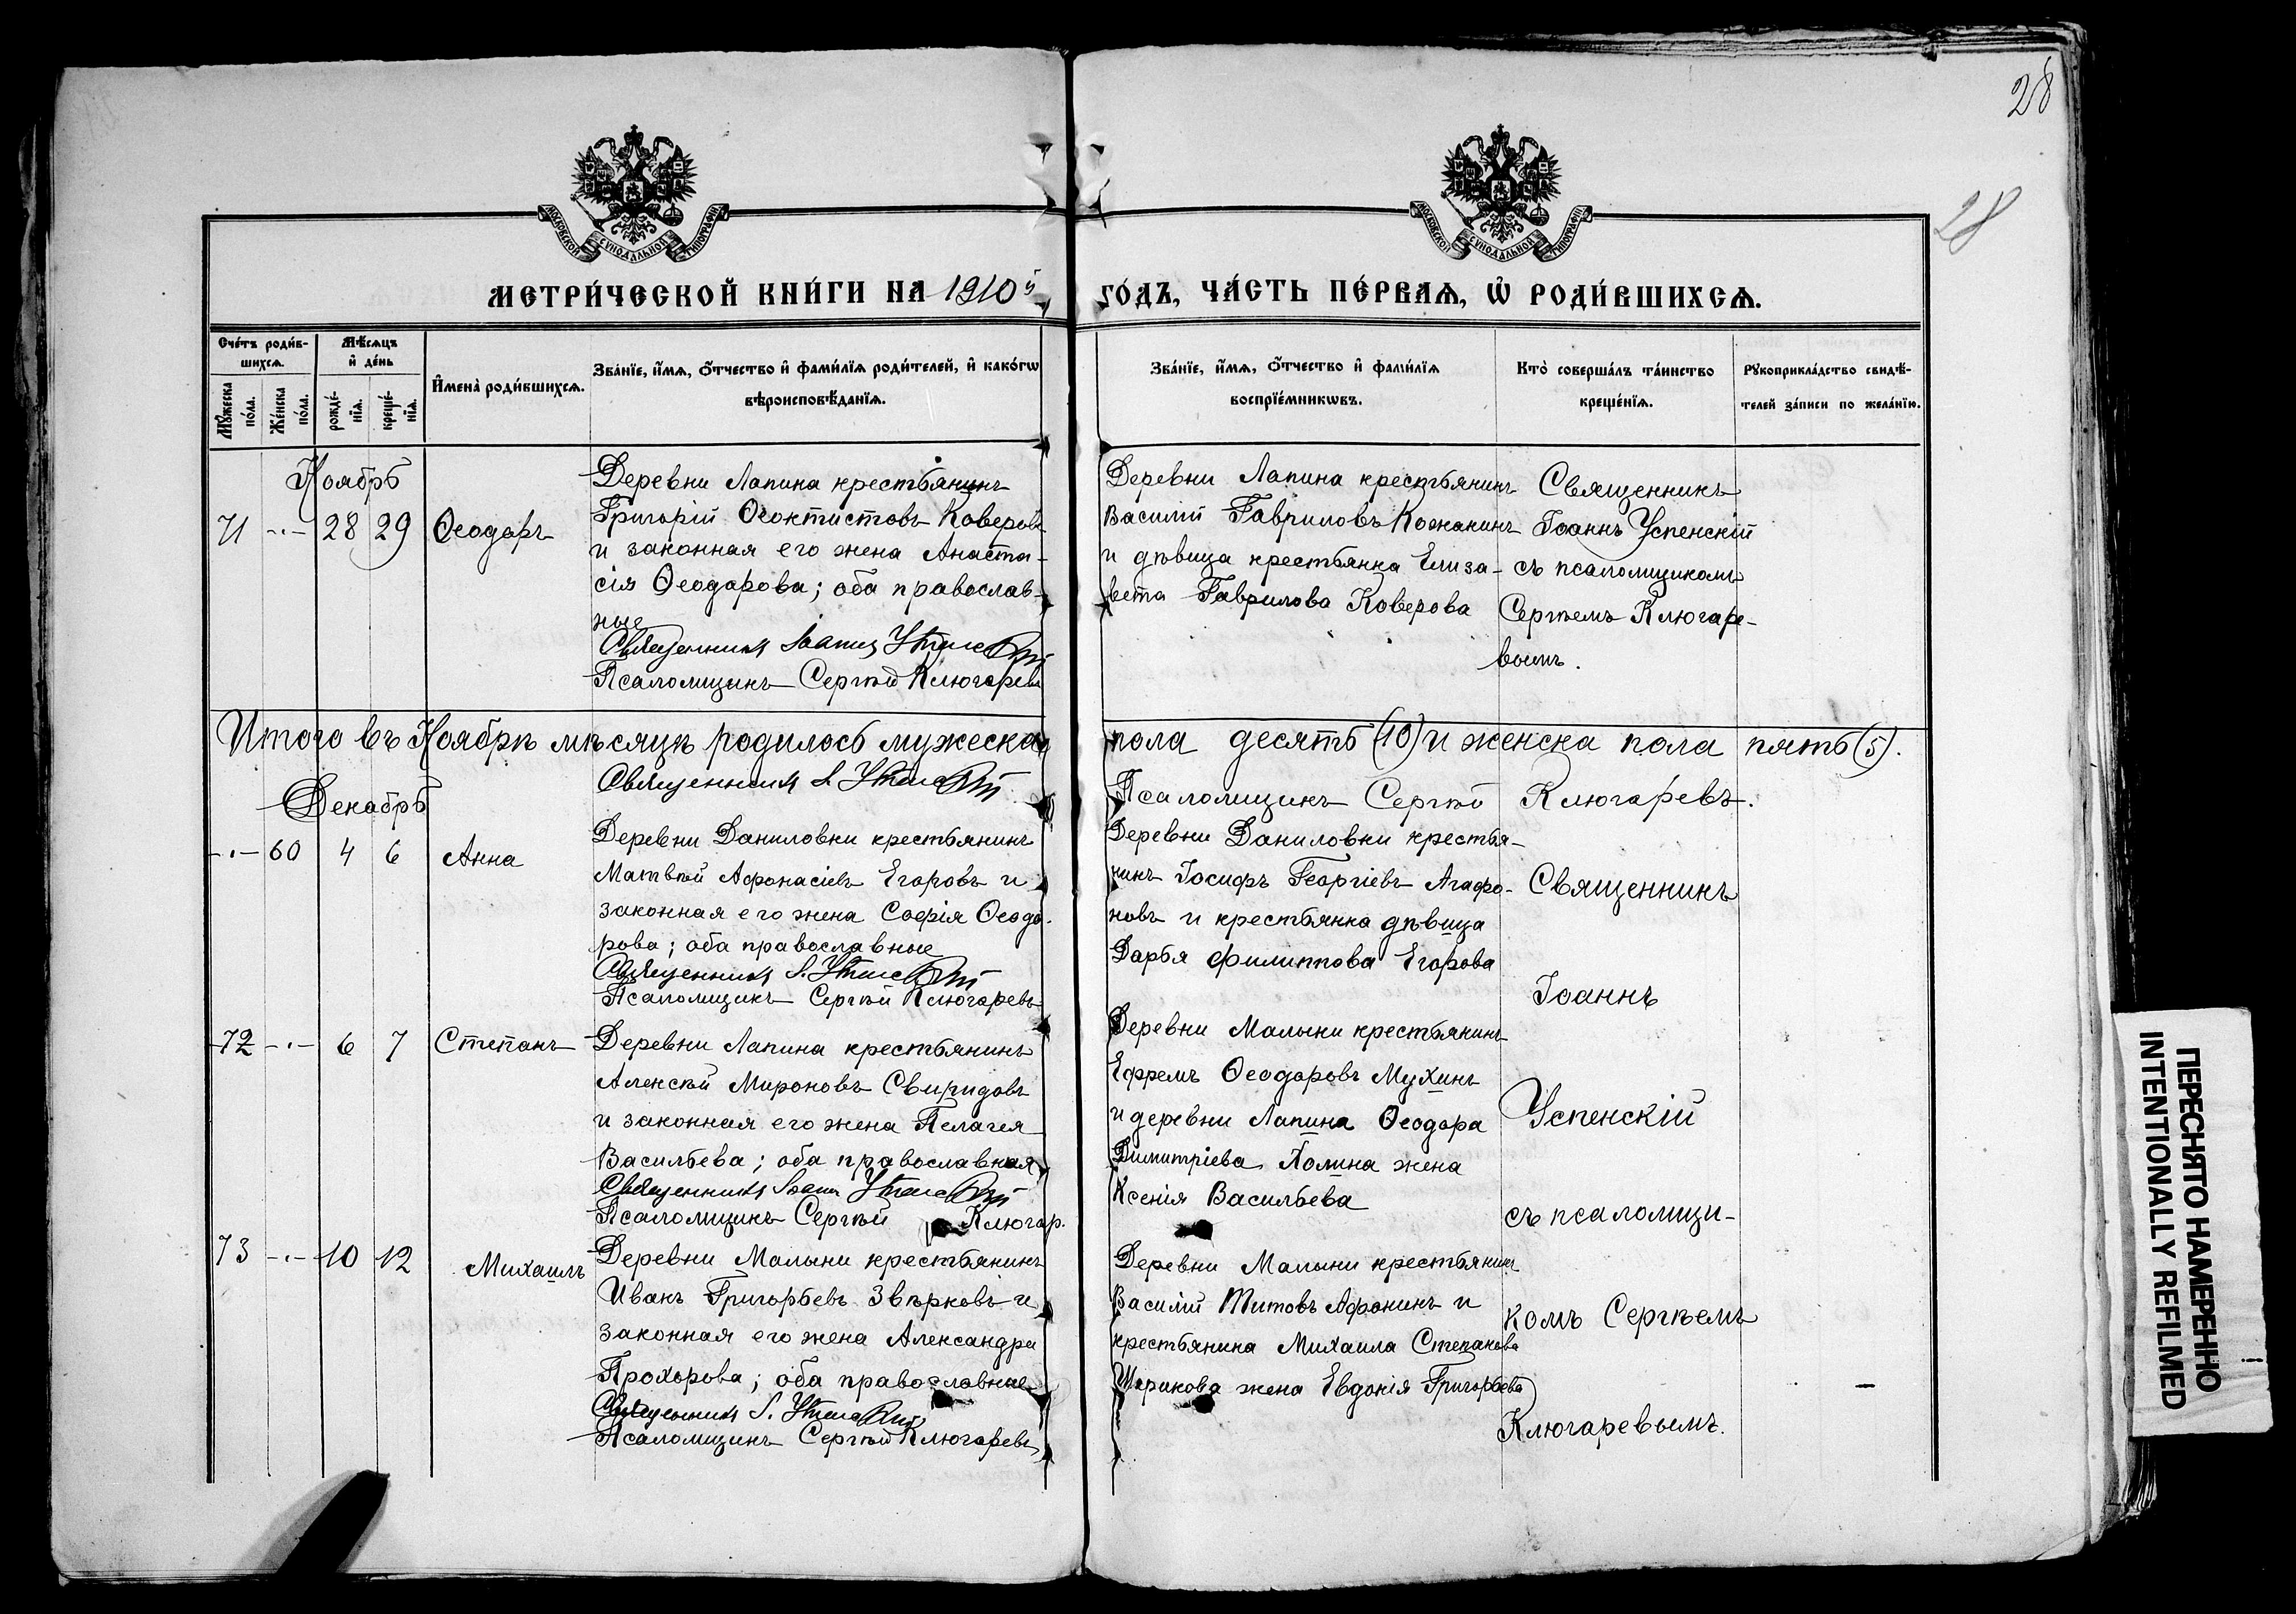 28
28
МОСКОВСКОЙ СѴНОДАЛЬНОЙ ТИПОГРАФІИ
МОСКОВСКОЙ СѴНОДАЛЬНОЙ ТИПОГРАФІИ
МЕТРИ́ЧЕСКОЙ КНИ́ГИ НА 1910й
ГО́ДЪ, ЧА́СТЬ ПЕ́РВАЯ, Ѡ РОДИ́ВШИХСЯ.
Сче́тъ роди́в-
шихся.
Мꙋ́жеска
по́ла.
Же́нска
по́ла.
Мѣ́сяцъ
и҆ де́нь
рожде́-
нїя.
креще́-
нїя.
И҆мена̀ роди́вшихся.
Зва́нїе, и҆́мя, о҆́тчество и҆ фами́лїя роди́телей, и҆ како́гѡ
вѣроисповѣ́данїя.
Зва́нїе, и҆́мя, о҆́тчество и҆ фами́лїя
воспрїе́мникѡвъ.
Кто̀ соверша́лъ та́инство
креще́нїя.
Рꙋкоприкла́дство свидѣ́-
телей за́писи по жела́нїю.
Ноябрь
71 -"- 28 29 Ѳеодоръ
Деревни Лапина крестьянинъ
Григорій Ѳеоктистовъ Коверовъ
и законная его жена Анаста-
сія Ѳеодорова; оба православ-
ные
Священникъ Іоаннъ Успенскій
Псаломщикъ Сергѣй Ключаревъ
Деревни Лапина крестьянинъ
Василій Гавриловъ Кожакинъ
и дѣвица крестьянка Елиза-
вета Гаврилова Коверова
Священникъ
Іоаннъ Успенскій
съ псаломщикомъ
Сергѣемъ Ключаре-
вымъ.
Итого въ Ноябрѣ мѣсяцѣ родилось мужеска пола десять (10) и женска пола пять (5).
Священникъ І. Успенскій
Псаломщикъ Сергѣй Ключаревъ.
Декабрь
-"- 60 4 6 Анна
Деревни Даниловки крестьянинъ
Матвѣй Афонасіевъ Егоровъ и
законная его жена Софія Ѳеодо-
рова; оба православные
Священникъ І. Успенскій
Псаломщикъ Сергѣй Ключаревъ
Деревни Даниловки крестья-
нинъ Іосифъ Георгіевъ Агафо-
новъ и крестьянка дѣвица
Дарья Филиппова Егорова
72 -"- 6 7 Степанъ
Деревни Лапина крестьянинъ
Алексѣй Мироновъ Свиридовъ
и законная его жена Пелагея
Васильева; оба православная
Священникъ Іоаннъ Успенскій
Псаломщикъ Сергѣй Ключар.
Деревни Малыни крестьянинъ
Ефремъ Ѳеодоровъ Мухинъ
и деревни Лапина Ѳеодора
Димитріева жена
Ксенія Васильева
73 -"- 10 12 Михаилъ
Деревни Малыни крестьянинъ
Иванъ Григорьевъ Звѣрковъ и
законная его жена Александра
Прохорова; оба православные
Священникъ І. Успенскій
Псаломщикъ Сергѣй Ключаревъ
Деревни Малыни крестьянинъ
Василій Титовъ Афонинъ и
крестьянина Михаила Степанова
Шарикова жена Евдокія Григорьева
Священникъ
Іоаннъ
Успенскій
съ псаломщи-
комъ Сергѣемъ
Ключаревымъ.
ПЕРЕСНЯТО НАМЕРЕННО
INTENTIONALLY REFILMED